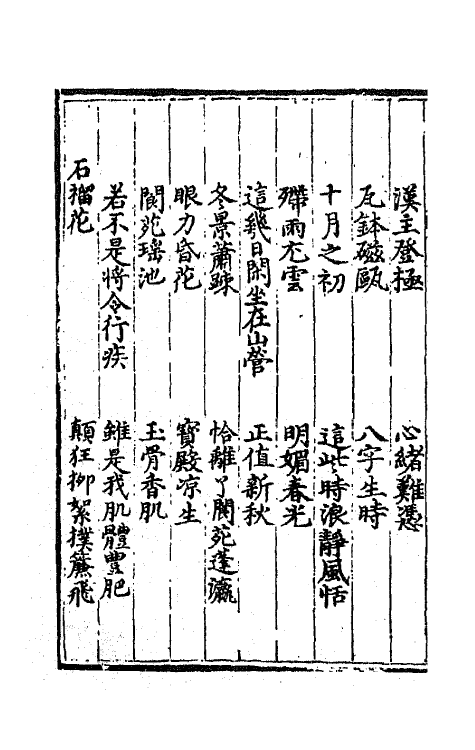 漢主登極　心緒難憑
瓦鉢磁甌　八字生時
十月之初　這些時浪靜風恬
殢雨尤雲　明媚春光
這幾日閑坐在山營　正值新秋
冬景蕭疎　恰離了閬苑蓬瀛
眼力昏花　寶殿凉生
閬苑瑶池　玉骨香肌
若不是將令行疾　雖是我肌體豐肥
石榴花　顛狂柳絮撲簾飛